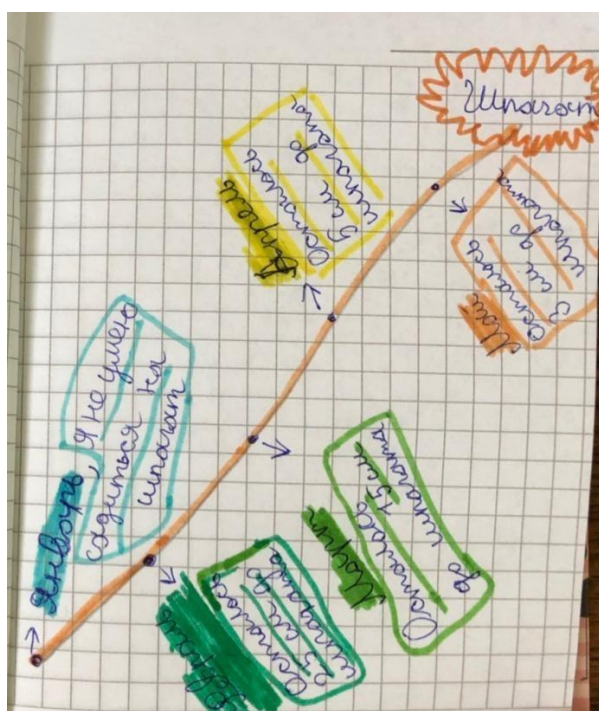 Январь,
Я не умею
садиться на
шпагат
Февраль
Осталось
25 см до
шпагата
Март
Осталось 15 см
до шпагата
Апрель
Осталось
5 см до
шпагата
Май
Осталось
3 см до
шпагата
Шпагат